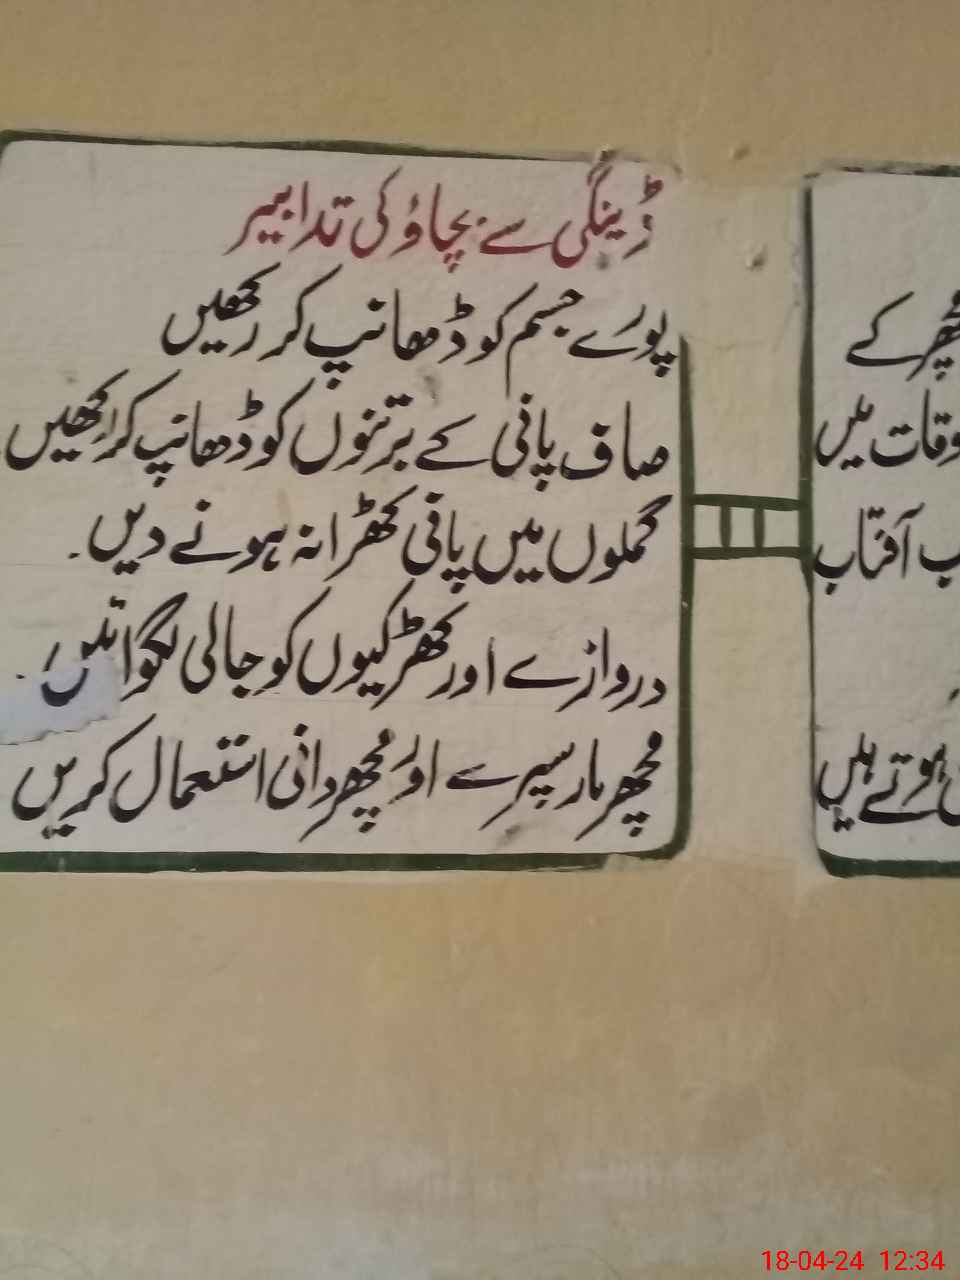 ڈینگی سے بچاؤ کی تدابیر
پورے جسم کو ڈھانپ کر رکھیں
صاف پانی کے برتنوں کو ڈھانپ کر رکھیں
گملوں میں پانی کھڑا نہ ہونے دیں۔
دروازے اور کھڑکیوں کو جالی لگوائیں۔
مچھر مار سپرے اور مچھر دانی استعمال کریں
مچھر کے
اوقات میں
آفتاب
ہوتے ہیں
18-04-24 12:34